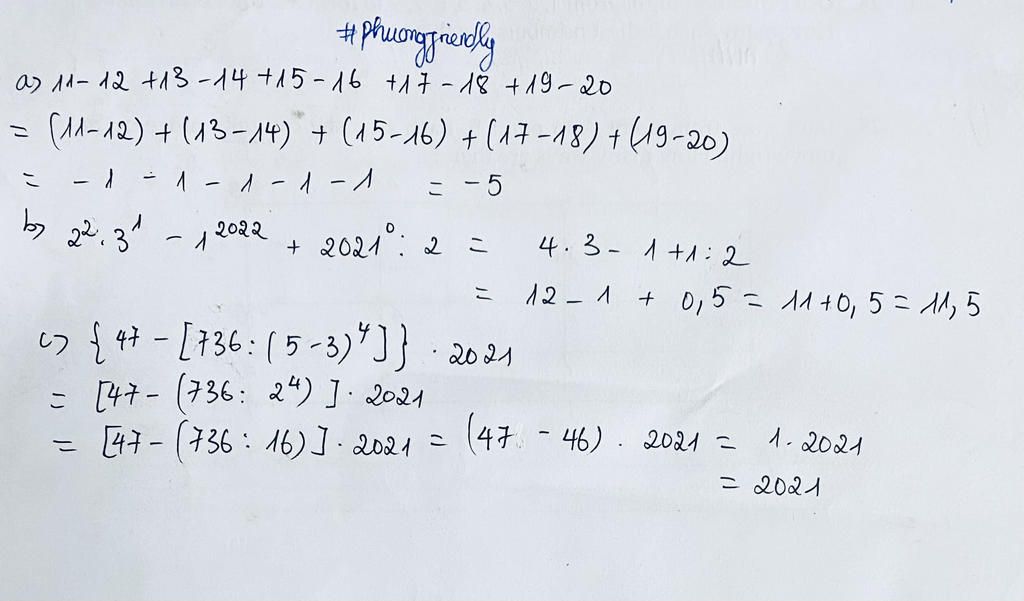 #phuongfriendly
a) 11 - 12 + 13 - 14 + 15 - 16 + 17 - 18 + 19 - 20
= (11 - 12) + (13 - 14) + (15 - 16) + (17 - 18) + (19 - 20)
= - 1 - 1 - 1 - 1 - 1 = - 5
b) 2². 3¹ - 1²⁰²² + 2021⁰ : 2 = 4 . 3 - 1 + 1 : 2
= 12 - 1 + 0,5 = 11 + 0,5 = 11,5
c) { 47 - [736 : (5 - 3)⁴] } . 2021
= [47 - (736 : 2⁴) ] . 2021
= [47 - (736 : 16)] . 2021 = (47 - 46) . 2021 = 1 . 2021
= 2021